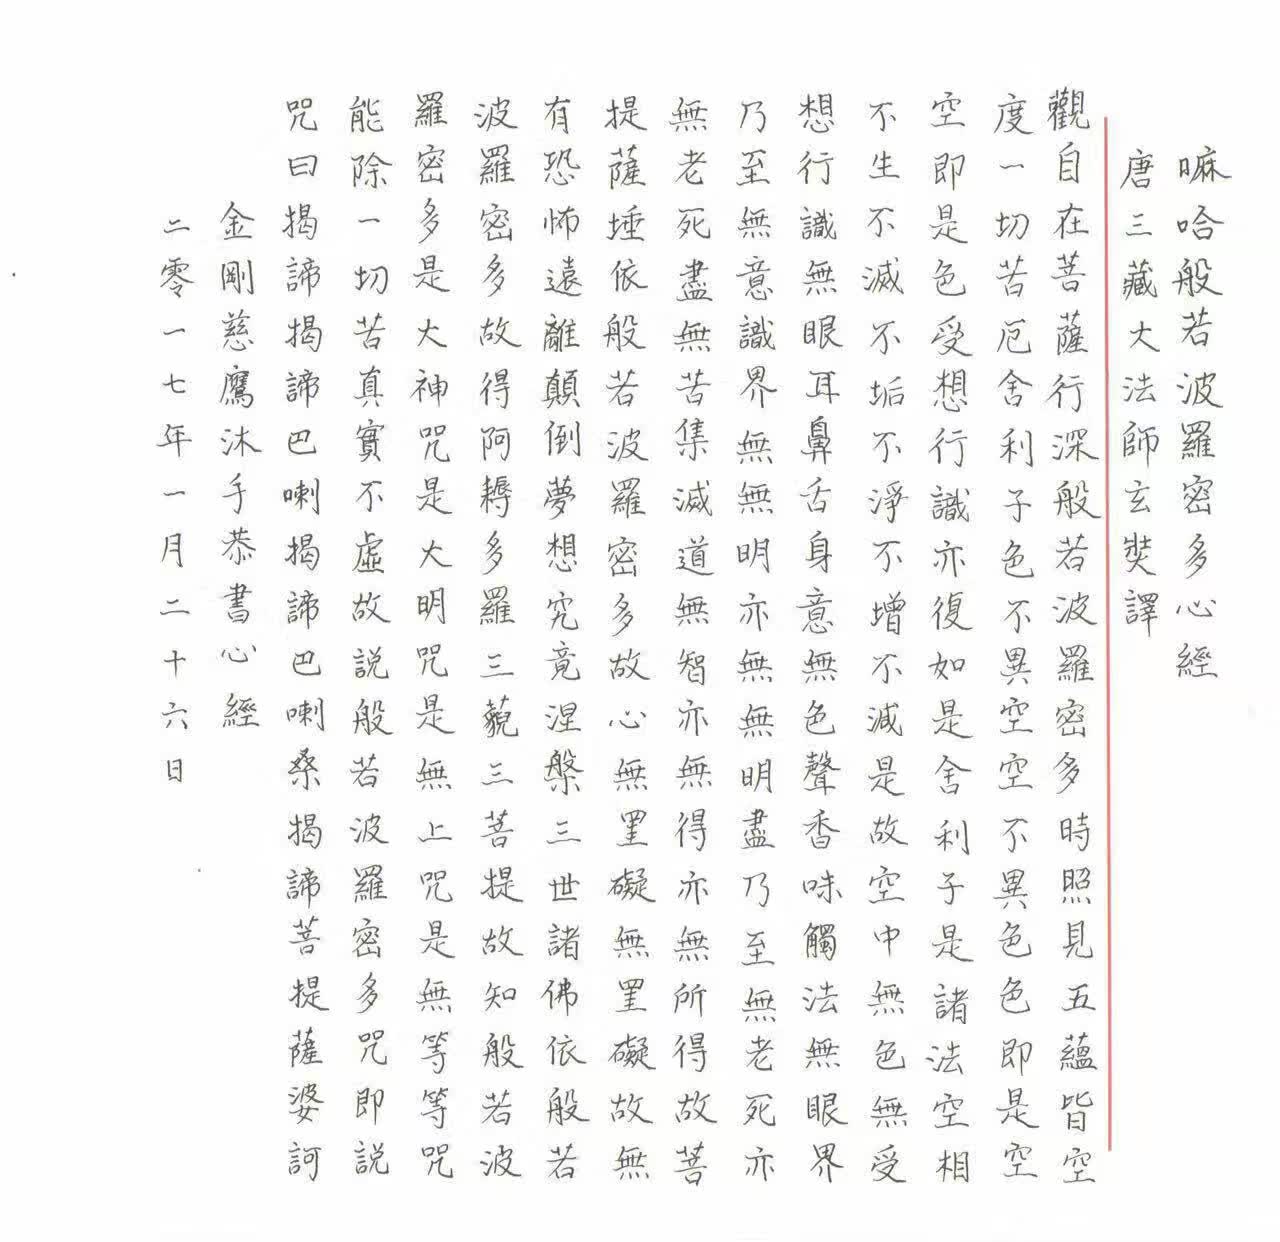 嘛哈般若波羅密多心經
唐三藏大法師玄奘譯
觀自在菩薩行深般若波羅密多時照見五蘊皆空
度一切苦厄舍利子色不異空空不異色色即是空
空即是色受想行識亦復如是舍利子是諸法空相
不生不滅不垢不淨不增不減是故空中無色無受
想行識無眼耳鼻舌身意無色聲香味觸法無眼界
乃至無意識界無無明亦無無明盡乃至無老死亦
無老死盡無苦集滅道無智亦無得亦無所得故菩
提薩埵依般若波羅密多故心無罣礙無罣礙故無
有恐怖遠離顛倒夢想究竟涅槃三世諸佛依般若
波羅密多故得阿耨多羅三藐三菩提故知般若波
羅密多是大神咒是大明咒是無上咒是無等等咒
能除一切苦真實不虛故説般若波羅密多咒即説
咒曰揭諦揭諦巴喇揭諦巴喇桑揭諦菩提薩婆訶
金剛慈鷹沐手恭書心經
二零一七年一月二十六日